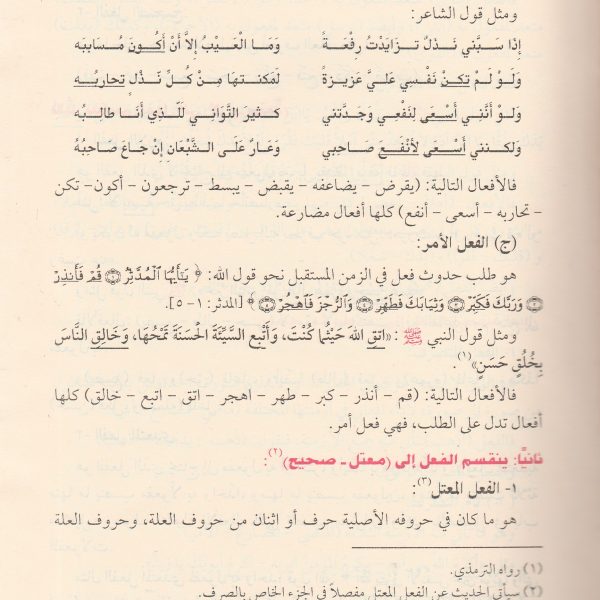 ومثل قول الشاعر:
إذا سَبَّني نَذْلٌ تزايَدْتُ رِفْعةً وَمَا العَيْبُ إلَّا أنْ أكُونَ مُسَابِبَه
وَلَوْ لَمْ تكِنْ نَفْسِي عَلَيَّ عَزيزةً لَمَكَنتهَا مِنْ كُلِّ نَذْلٍ تحاربُه
وَلوْ أنَّنِي أسْعَى لِنَفْعِي وَجَدَّتني كثيرَ التَّوَانِي لِلَّذِي أنَا طالِبُه
وَلكنني أسْعَى لأنْفَعَ صَاحِبي وَعَارٌ عَلَى الشَّبْعَانِ إنْ جَاعَ صَاحِبُهُ
فالأفعال التالية: (يقرض – يضاعفه – يقبض – يبسط – ترجعون – أكون – تكن
– تحاربه – أسعى – أنفع) كلها أفعال مضارعة.
(ج) الفعل الأمر:
هو طلب حدوث فعل في الزمن المستقبل نحو قول الله: ﴿ يَٰٓأَيُّهَا ٱلْمُدَّثِّرُ ۝١ قُمْ فَأَنذِرْ
۝٢ وَرَبَّكَ فَكَبِّرْ ۝٣ وَثِيَابَكَ فَطَهِّرْ ۝٤ وَٱلرُّجْزَ فَٱهْجُرْ ۝٥ ﴾ [المدثر: ١ – ٥].
ومثل قول النبي ﷺ : «اتقِ اللهَ حَيْثُما كُنْتَ، وَأَتْبِعِ السَّيِّئَةَ الحَسَنَةَ تَمْحُهَا، وَخَالِقِ النَّاسَ
بِخُلُقٍ حَسَنٍ»(١).
فالأفعال التالية: (قم – أنذر – كبر – طهر – اهجر – اتق – اتبع – خالق) كلها
أفعال تدل على الطلب، فهي فعل أمر.
ثانيًا: ينقسم الفعل إلى (معتل – صحيح)(٢):
١- الفعل المعتل(٣):
هو ما كان في حروفه الأصلية حرف أو اثنان من حروف العلة، وحروف العلة
(١) رواه الترمذي.
(٢) سيأتي الحديث عن الفعل المعتل مفصلًا في الجزء الخاص بالصرف.